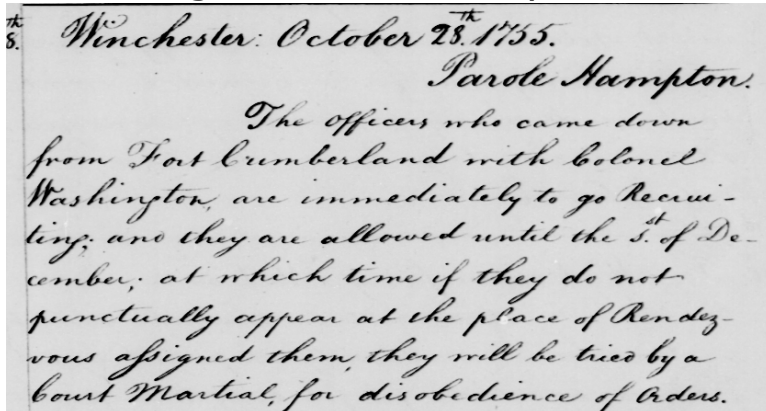 th
8. Winchester: October 28.th 1755.
Parole Hampton.
The officers who came down
from Fort Cumberland with Colonel
Washington, are immediately to go Recrui-
ting; and they are allowed until the 1.st of De-
cember; at which time if they do not
punctually appear at the place of Rendez-
vous assigned them, they will be tried by a
Court Martial, for disobedience of Orders.